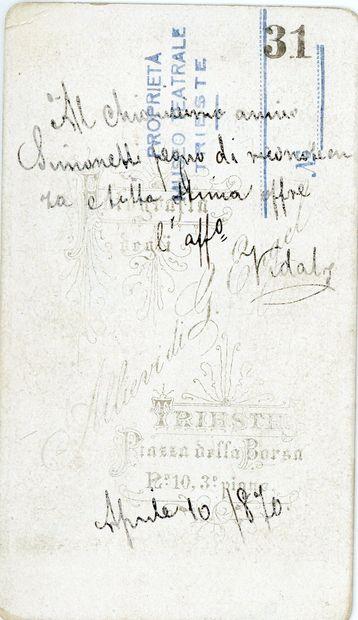 31
PROPRIETÀ
MUSEO TEATRALE
TRIESTE
N.
Al Chiarissimo amico
Simonetti pegno di riconoscen
za e tutta stima offre
l'affo
Vidal
Fotografia
degli
Allievi di G.
TRIESTE
Piazza della Borsa
No. 10, 3o. piano.
Aprile 10 1870.